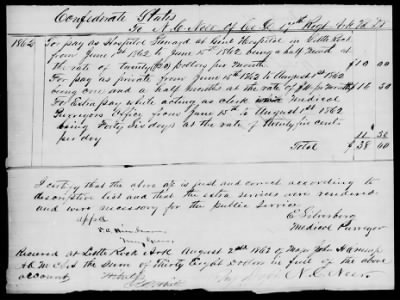 Confederate States
To N. C. Neer of Co. G. 17th Regt Ark Vols Dr
1862 For pay as Hospital Steward at Genl Hospital in Little Rock
from June 1st 1862 to June 15th 1862 being a half month at
the rate of twenty (20) Dollars per month $10 00
For pay as private from June 15th 1862 to August 1st 1862
being one and a half months at the rate of $11 per month 16 50
For Extra pay while acting as clerk in Medical
Purveyors Office from June 15th to August 1st 1862
being Forty Six days at the rate of twenty five cents
per day 11 50
Total $38 00
I certify that the above a/c is just and correct according to
descriptive list and that the extra services were rendered
and were necessary for the public service
appd
Medical Purveyor
Received at Little Rock Ark August 2nd 1862 of Major John
the sum of thirty Eight Dollars in full of the above
account
N. C. Neer